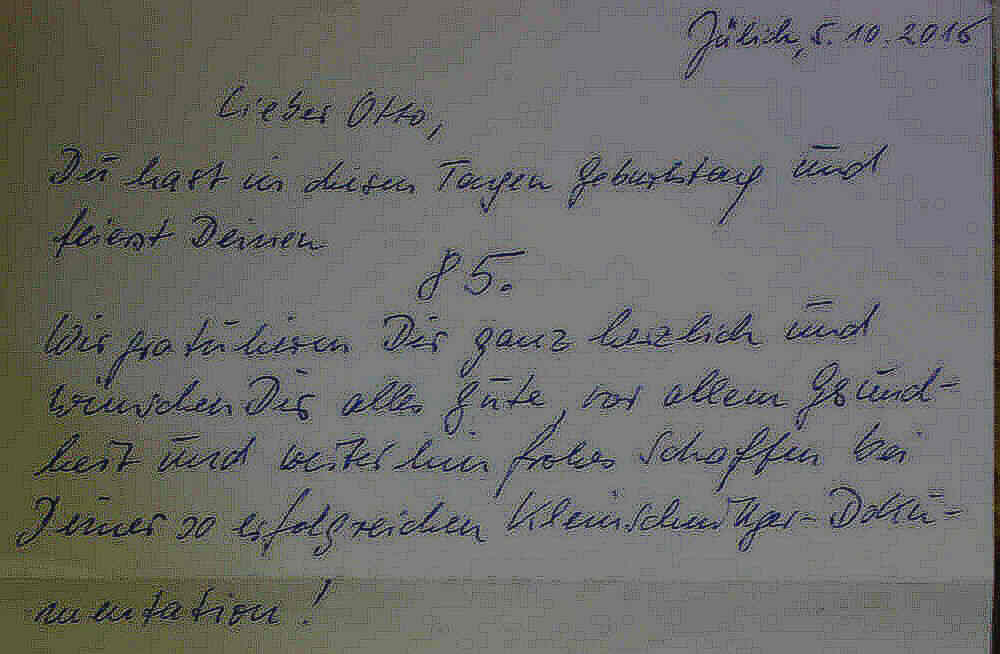 Jülich, 5.10.2016
Lieber Otto,
Du hast in diesen Tagen Geburtstag und
feierst Deinen
85.
Wir gratulieren Dir ganz herzlich und
wünschen Dir alles Gute, vor allem Gesund-
heit und weiterhin frohes Schaffen bei
Deiner so erfolgreichen Kleinschnittger-Doku-
mentation!